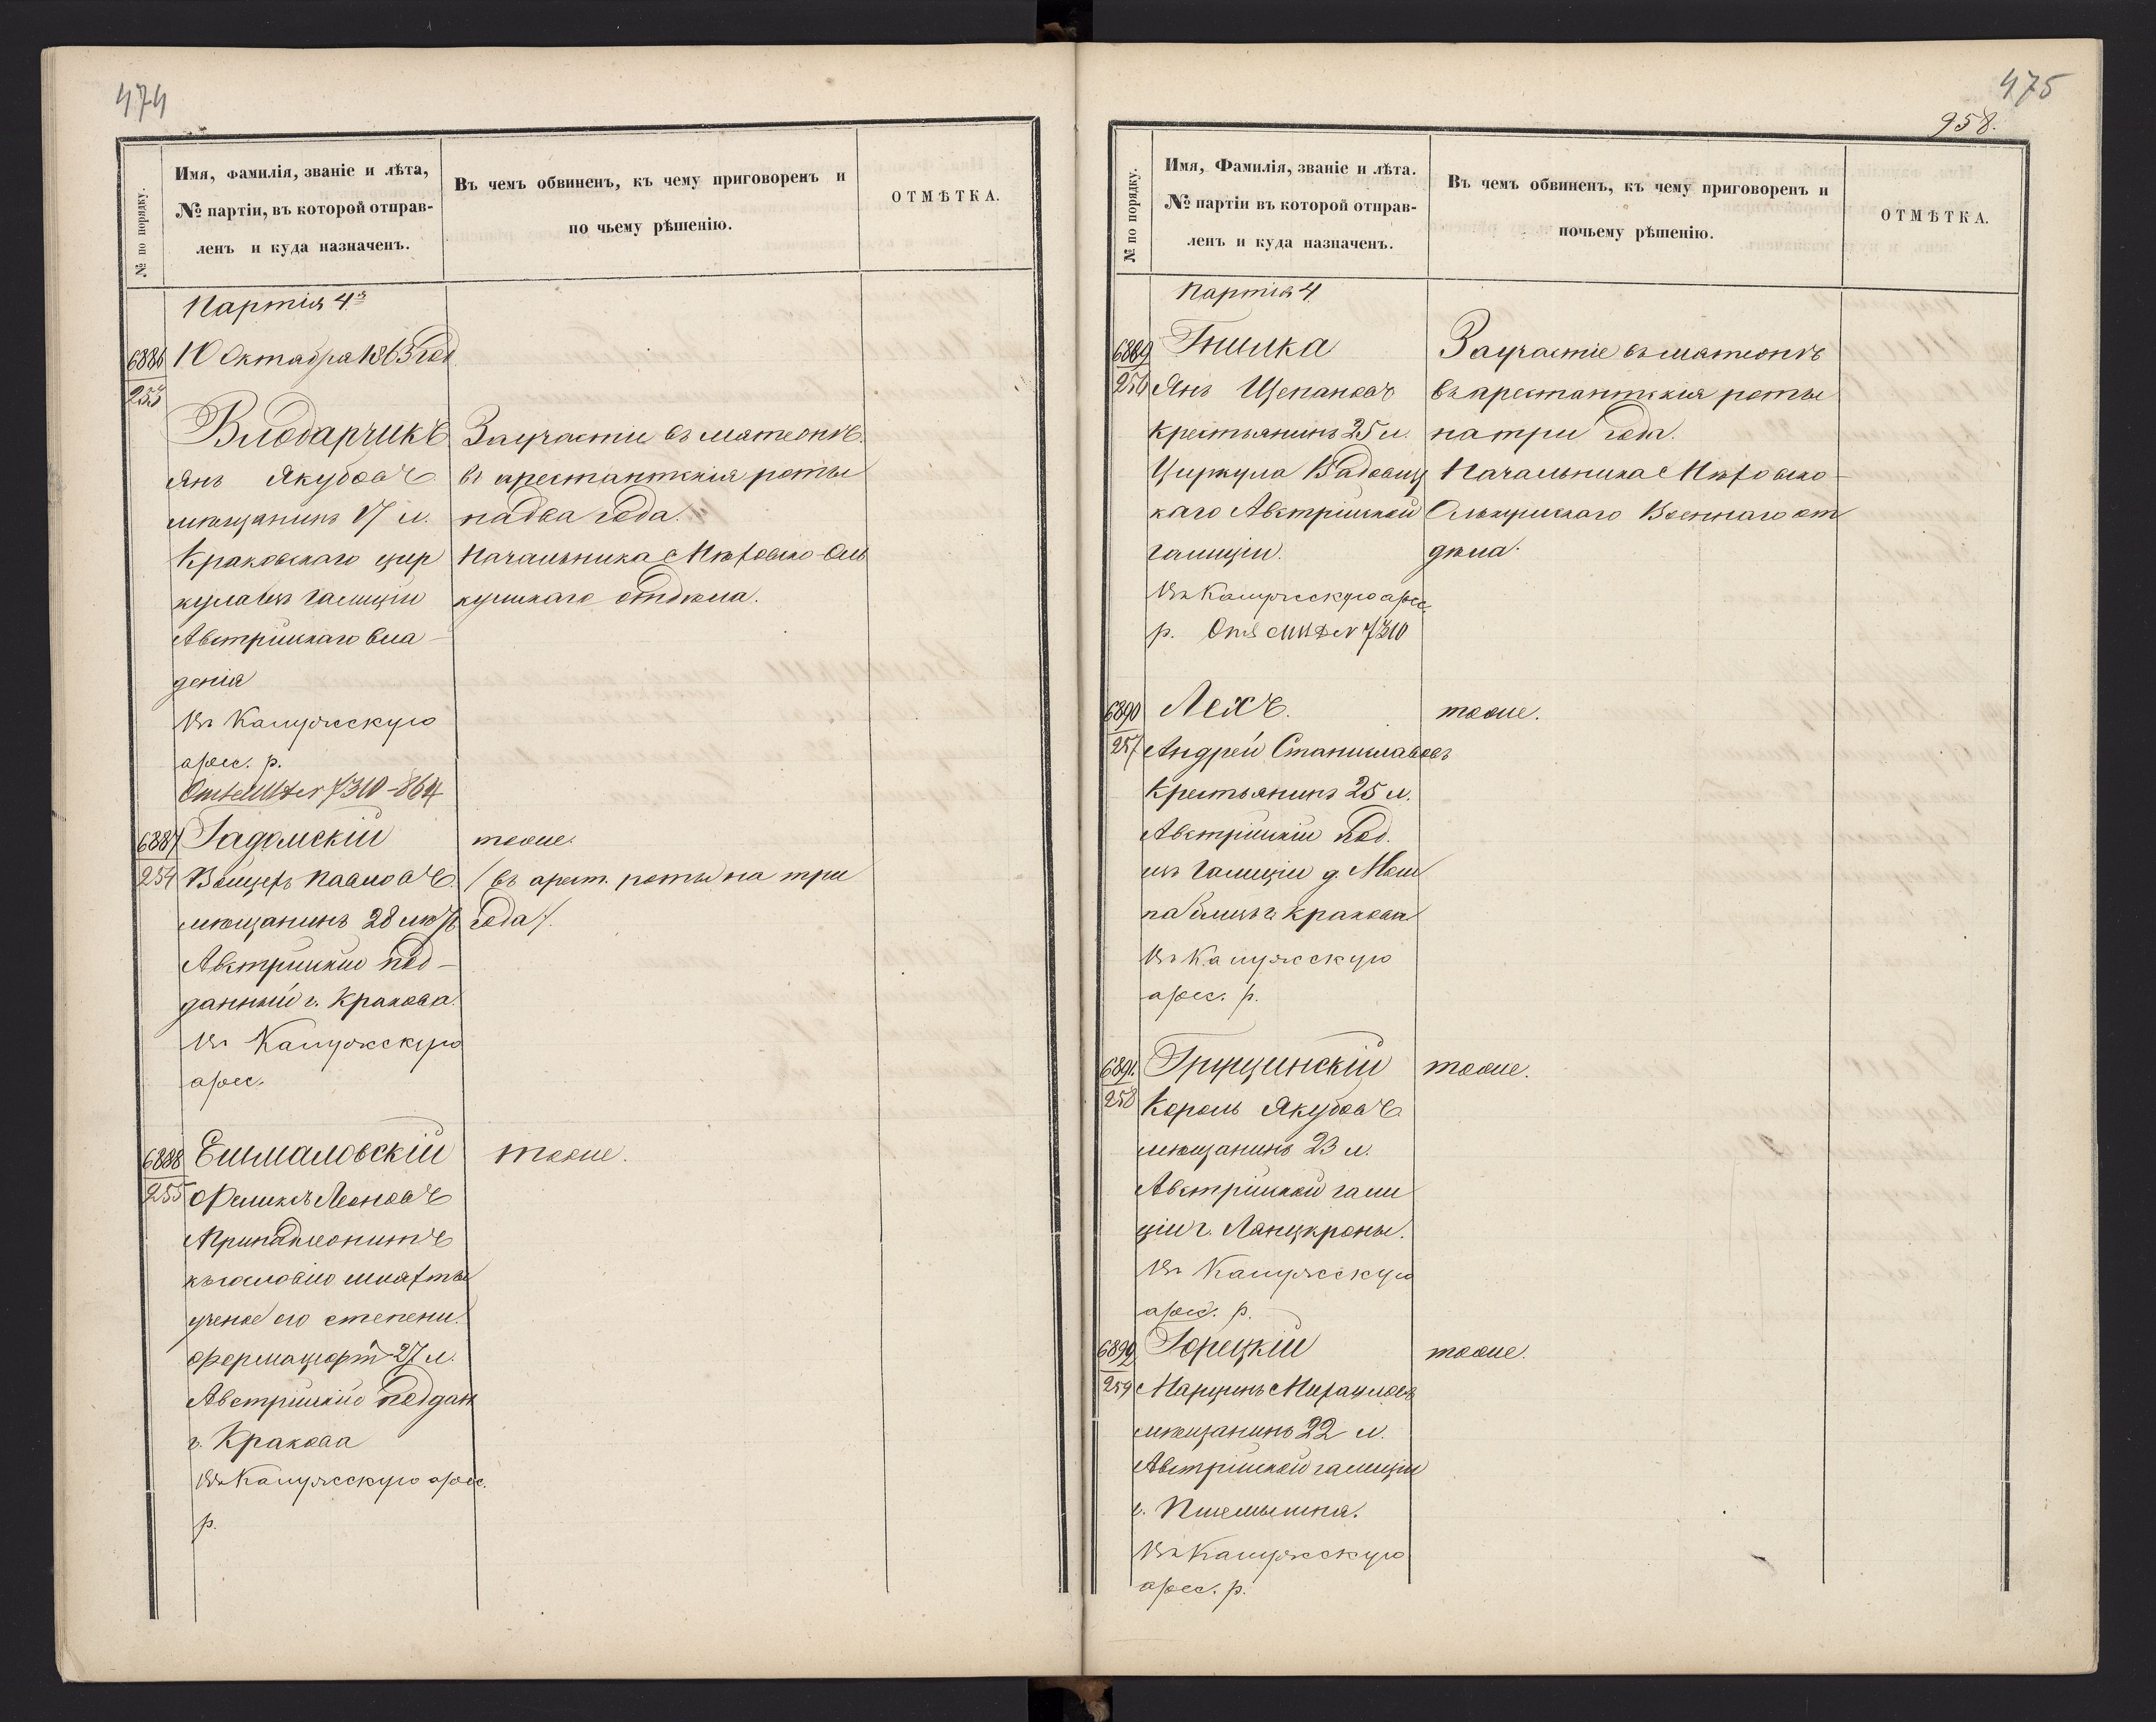 474
№ по порядку.
Имя, фамилія, званіе и лѣта,
№ партіи, въ которой отправ-
ленъ и куда назначенъ.
Въ чемъ обвиненъ, къ чему приговоренъ и
по чьему рѣшенію.
ОТМѢТКА.
Партія 4я
6886 10 Октября 1863 год
253
Влодарчикъ
Янъ Якубовъ
мѣщанинъ 17 л.
Краковскаго цир
кула изъ Галиціи
Австрійскаго вла-
денія
Въ Калужскую
арес. р.
7310-864
За участіе въ мятежѣ.
въ арестантскія роты
на два года.
Начальника Мѣховско-Оль
кушскаго отдѣла.
6887 Гадомскій
254 Войцехъ Павловъ
мѣщанинъ 28 лѣтъ
Австрійскій под-
данный г. Кракова.
Въ Калужскую
арес.
тоже.
/ въ арест. роты на три
года /.
6888
255 Феликсъ Леоновъ
Принадлежитъ
къ сословію
ученое его степени.
фармацефтъ 27 л.
Австрійскій поддан
г. Кракова
Въ Калужскую арес.
р.
тоже.
475
958.
№ по порядку.
Имя, Фамилія, званіе и лѣта.
№ партіи въ которой отправ-
ленъ и куда назначенъ.
Въ чемъ обвиненъ, къ чему приговоренъ и
почьему рѣшенію.
ОТМѢТКА.
Партія 4
6889 Гнилка
256 Янъ Щепановъ
крестьянинъ 25 л.
Циркула Вадовиц
каго Австрійской
Галиціи.
Въ Калужскую арес.
р. 7310
За участіе въ мятежѣ
въ арестантскія роты
на три года.
Начальника Мѣховско-
Олькушскаго Военнаго от
дѣла.
6890 Лехъ.
257 Андрей Станиславовъ
крестьянинъ 25 л.
Австрійскій под.
изъ Галиціи д.
близь г. Кракова
Въ Калужскую
арес. р.
тоже.
6891. Грущинскій
258 Король Якубовъ
мѣщанинъ 23 л.
Австрійской Гали
ціи г. Ланцкроны.
Въ Калужскую
арес. р.
тоже.
6892 Горецкій
259 Марцинъ Михайловъ
мѣщанинъ 22 л.
Австрійской Галиціи
г. Пшемышля.
Въ Калужскую
арес. р.
тоже.